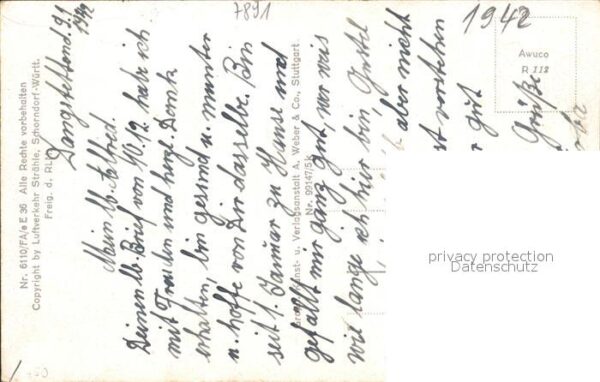 7891
1942
Awuco
R 112
Nr. 6110/FA/e E 36 Alle Rechte vorbehalten
Copyright by Luftverkehr Strähle, Schorndorf-Württ.
Freig. d. RLM
Dangstettend. 9.1
1942
Mein lb. Alfred.
Deinen lb. Brief vom 30.12. habe ich
mit Freuden und herzl. Dank
erhalten, bin gesund u. munter
u. hoffe von Dir dasselbe. Bin
seit 1. Januar zu Hause und
gefällt mir ganz gut, nur weis
wie lange ich hier bin
aber nicht
verstehen
gut
Grüße
Kunst- u. Verlagsanstalt A. Weber & Co., Stuttgart
Nr. 99147/5k
privacy protection
Datenschutz